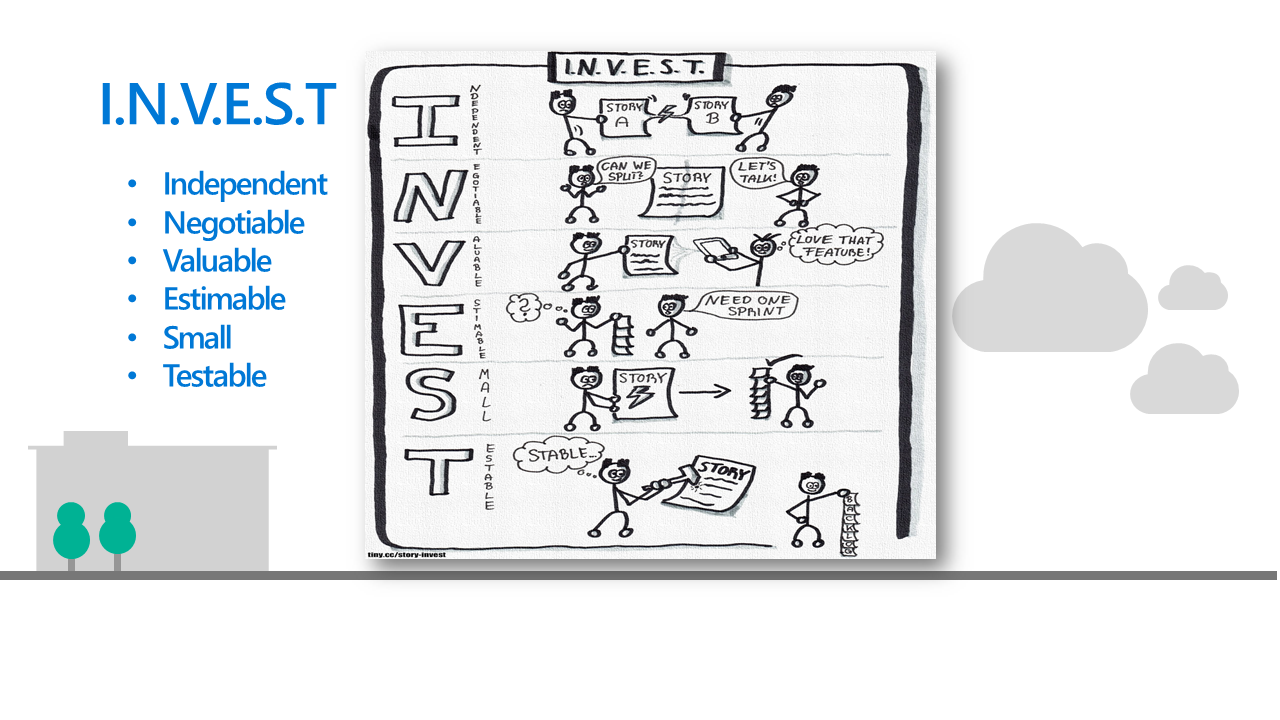 I.N.V.E.S.T
• Independent
• Negotiable
• Valuable
• Estimable
• Small
• Testable
I.N.V.E.S.T.
I
NDEPENDENT
STORY
A
STORY
B
N
EGOTIABLE
CAN WE
SPLIT?
STORY
LET'S
TALK!
V
ALUABLE
STORY
LOVE THAT
FEATURE!
E
STIMABLE
?
NEED ONE
SPRINT
S
MALL
STORY
T
ESTABLE
STABLE...
STORY
BACKLOG
tiny.cc/story-invest